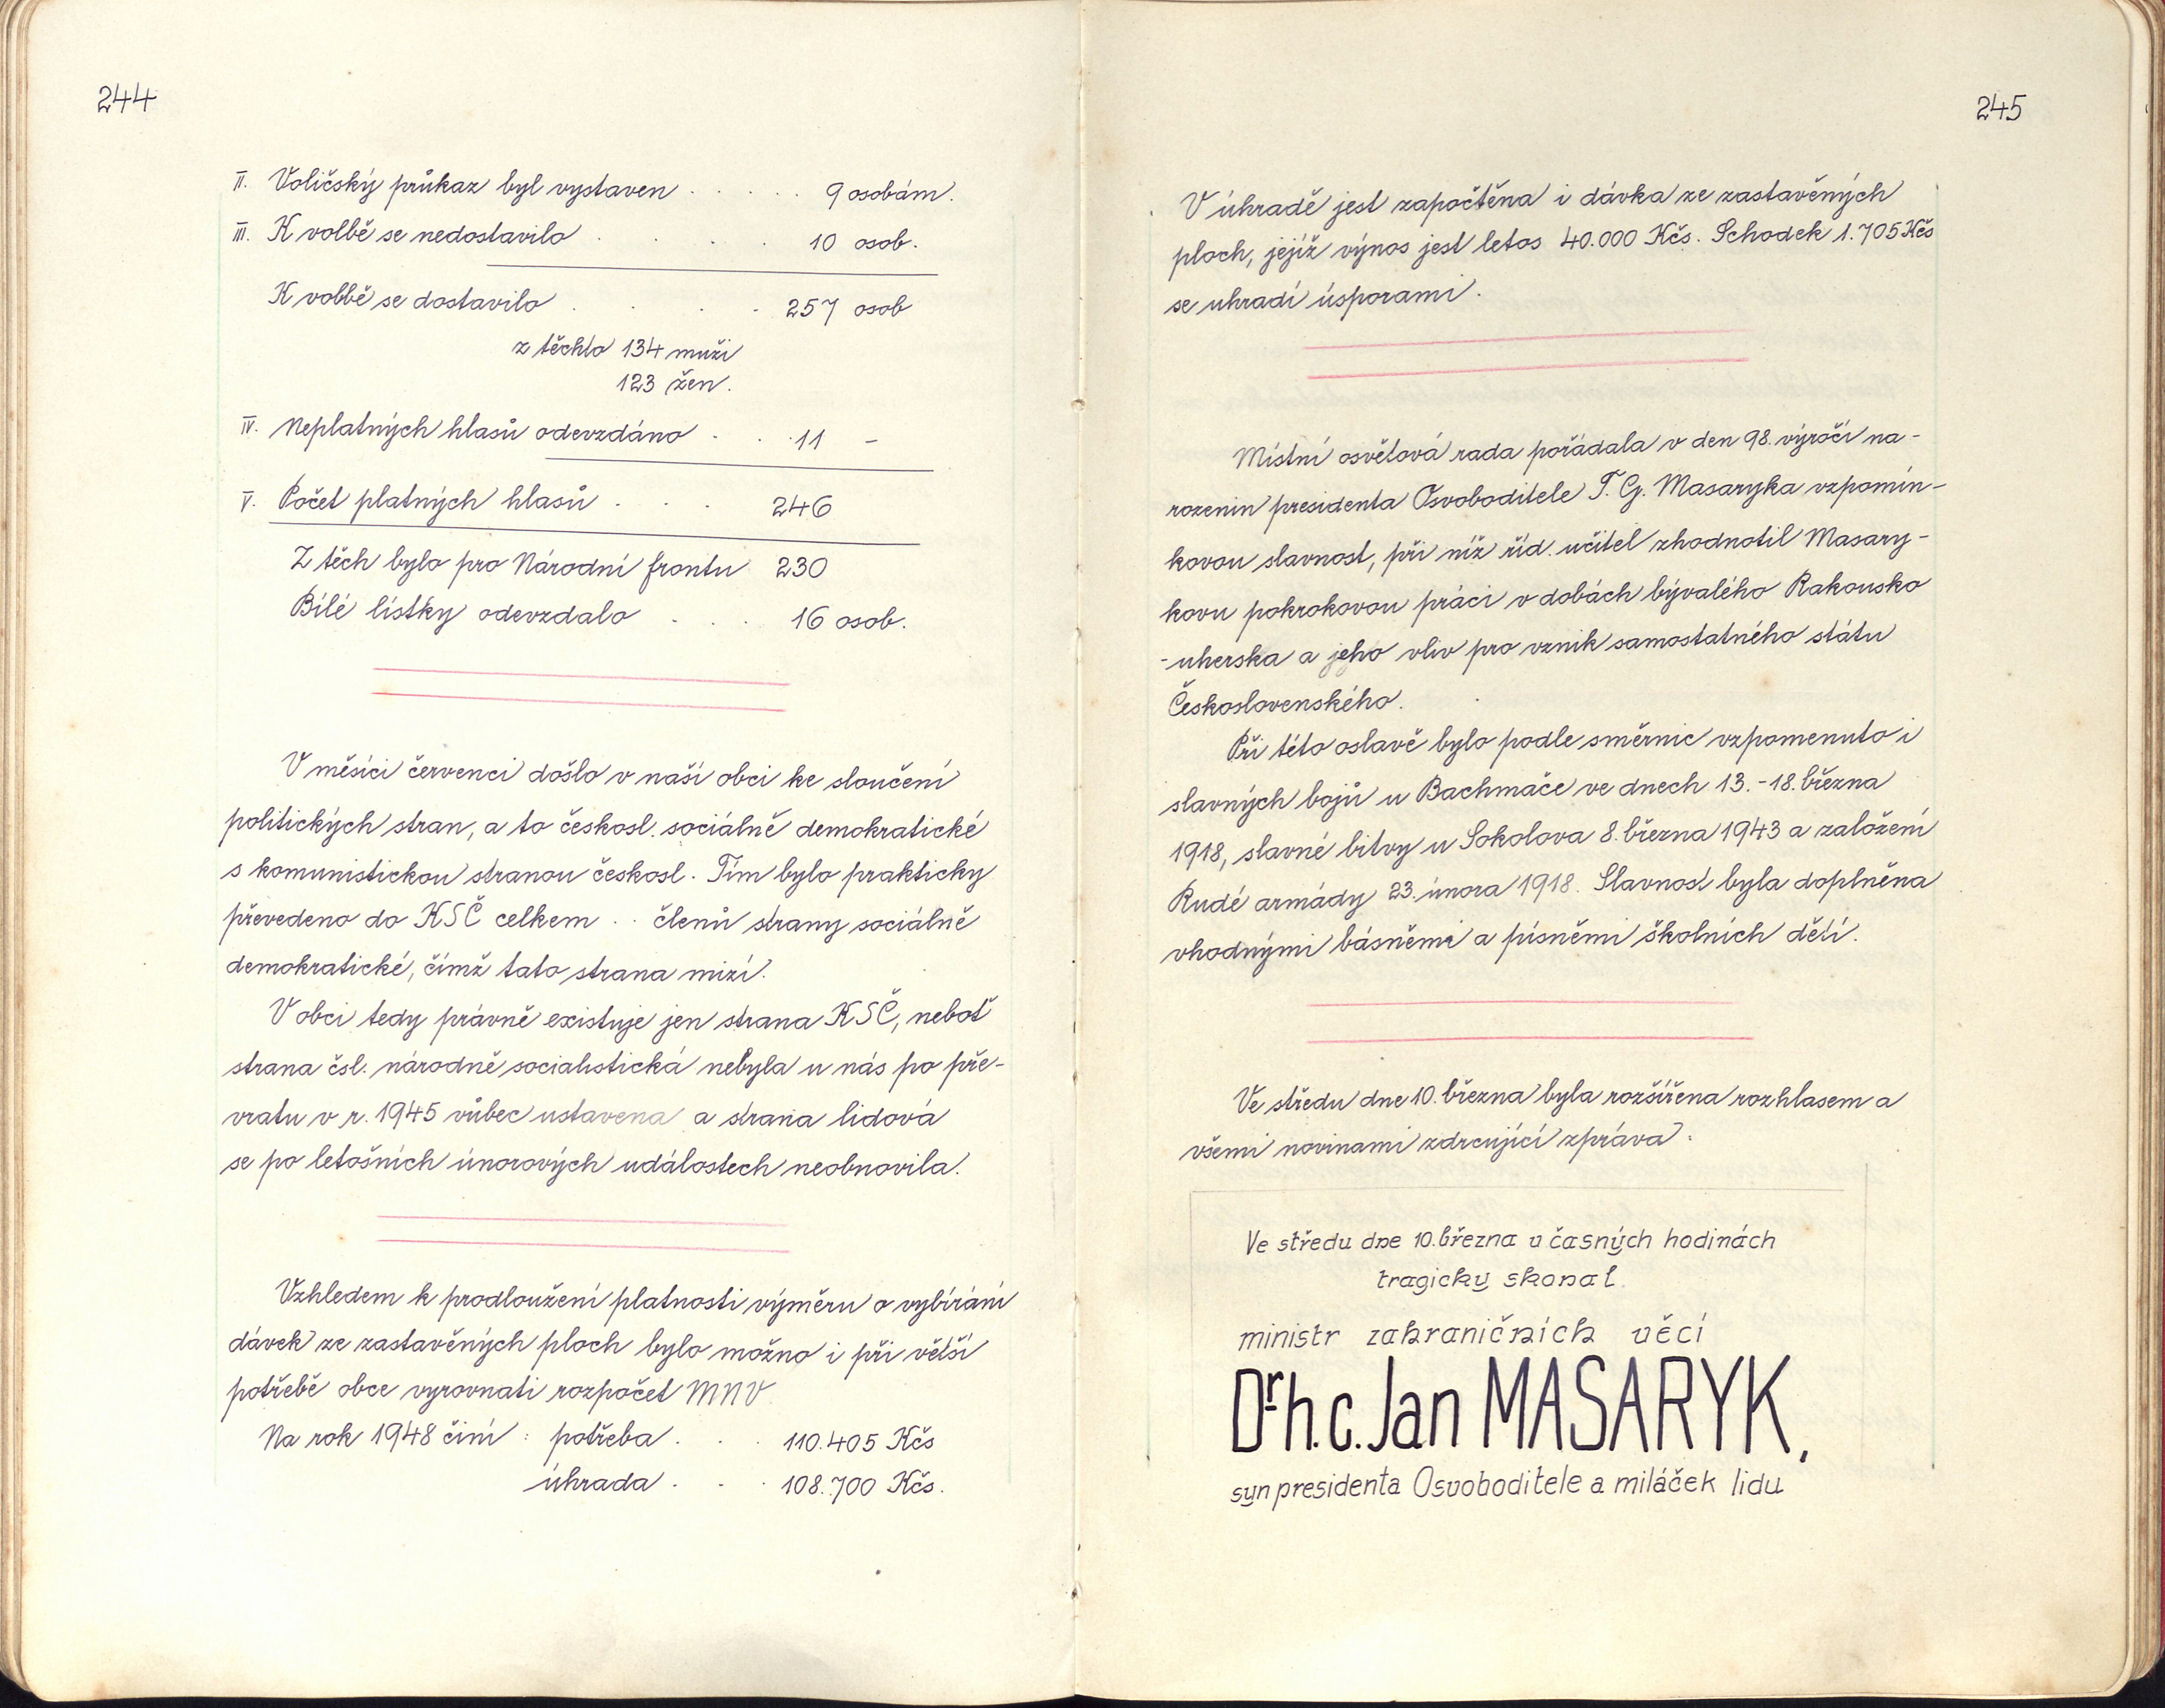 244
II. Voličský průkaz byl vystaven . . . . . 9 osobám.
III. K volbě se nedostavilo . . . . 10 osob.
K volbě se dostavilo . . . . 257 osob
z těchto 134 muži
123 žen.
IV. Neplatných hlasů odevzdáno . . . 11 –
V. Počet platných hlasů . . . 246
Z těch bylo pro Národní frontu 230
Bílé lístky odevzdalo . . . 16 osob.
V měsíci červenci došlo v naší obci ke sloučení
politických stran, a to českosl. sociálně demokratické
s komunistickou stranou českosl. Tím bylo prakticky
převedeno do KSČ celkem . . členů strany sociálně
demokratické, čímž tato strana mizí.
V obci tedy právně existuje jen strana KSČ, neboť
strana čsl. národně socialistická nebyla u nás po pře-
vratu v r. 1945 vůbec ustavena a strana lidová
se po letošních únorových událostech neobnovila.
Vzhledem k prodloužení platnosti výměru o vybírání
dávek ze zastavěných ploch bylo možno i při větší
potřebě obce vyrovnati rozpočet MNV
Na rok 1948 činí : potřeba . . . 110.405 Kčs
úhrada . . . 108.700 Kčs.
245
V úhradě jest započtěna i dávka ze zastavěných
ploch, jejíž výnos jest letos 40.000 Kčs. Schodek 1.705 Kčs
se uhradí úsporami.
Místní osvětová rada pořádala v den 98. výročí na-
rozenin presidenta Osvoboditele T. G. Masaryka vzpomín-
kovou slavnost, při níž říd. učitel zhodnotil Masary-
kovu pokrokovou práci v dobách bývalého Rakousko
-uherska a jeho vliv pro vznik samostatného státu
Československého.
Při této oslavě bylo podle směrnic vzpomenuto i
slavných bojů u Bachmače ve dnech 13.-18. března
1918, slavné bitvy u Sokolova 8. března 1943 a založení
Rudé armády 23. února 1918. Slavnost byla doplněna
vhodnými básněmi a písněmi školních dětí.
Ve středu dne 10. března byla rozšířena rozhlasem a
všemi novinami zdrcující zpráva :
Ve středu dne 10. března v časných hodinách
tragicky skonal
ministr zahraničních věcí
Dr h. c. Jan MASARYK,
syn presidenta Osvoboditele a miláček lidu